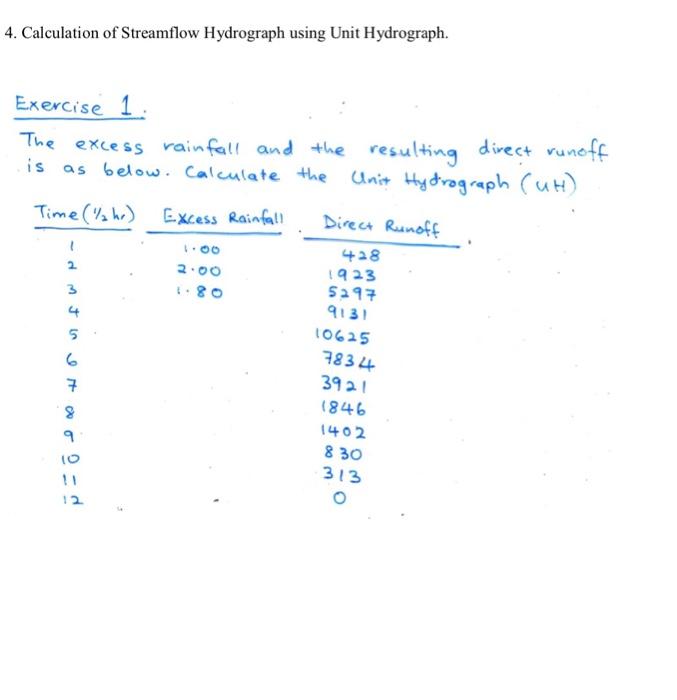 4. Calculation of Streamflow Hydrograph using Unit Hydrograph.
Exercise 1.
The excess rainfall and the resulting direct runoff
is as below. Calculate the Unit Hydrograph (UH)
Time (1/2 hr) Excess Rainfall Direct Runoff
1 1.00 428
2 2.00 1923
3 1.80 5297
4 9131
5 10625
6 7834
7 3921
8 1846
9 1402
10 830
11 313
12 0